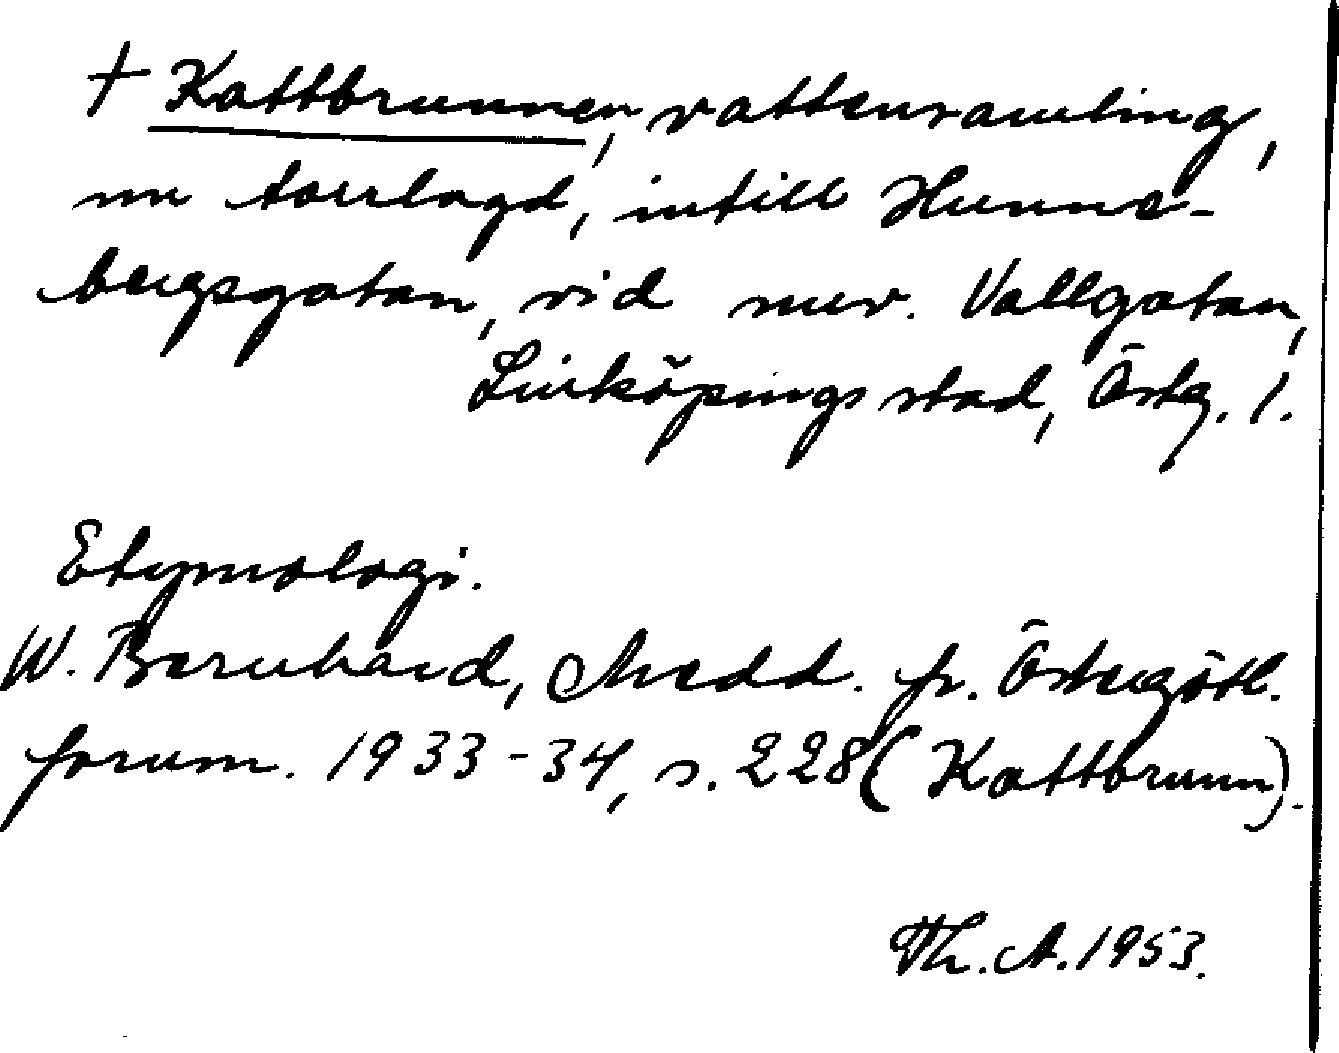 + Kattbrunnen, vattensamling,
nu torrlagd, intill Hunne-
bergsgatan, vid nuv. Vallgatan,
Linköpings stad, Östg. l.
Etymologi.
W. Bernhard, Medd. fr. Östergötl.
fornm. 1933-34, s. 228 (Kattbrunn).
Th. A. 1953.